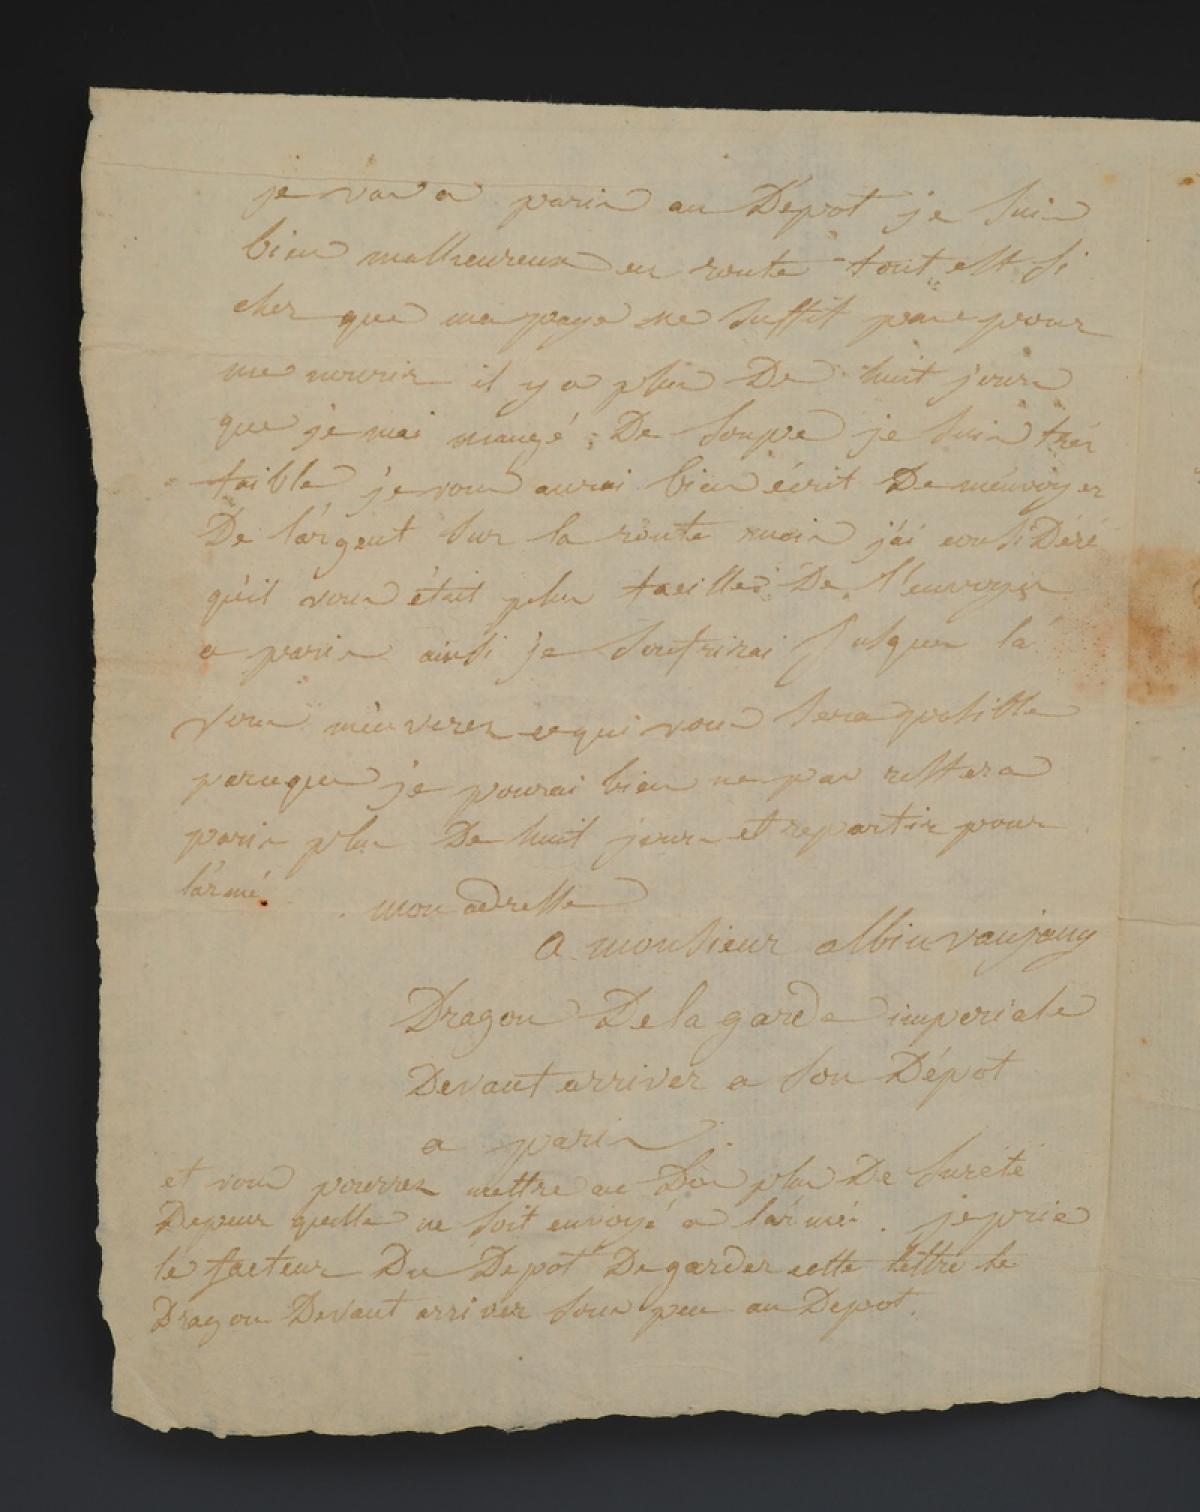 je vas a paris au Dépot je suis
bien malheureux en route tout est si
cher que ma paye ne suffit pas pour
me nourir il y a plus De huit jours
que je nai mangé De soupe je suis trés
faible je vous aurai bien écrit De m'envoyer
De l'argent sur la route mais j'ai consideré
qu'il vous était plus facilles De l'envoyer
a paris ainsi je soufrirai jusques là
vous m'enverez ce qui vous sera posible
parceque je pourai bien ne pas rester a
paris plus De huit jours et repartir pour
l'armé. mon adresse
A monsieur albin vaujany
Dragon De la garde imperiale
Devant arriver a son Dépot
a paris.
et vous pourrez mettre au Dos plus De sureté
De peur quelle ne soit envoyé a l'armé. je prie
le facteur Du Depot De garder cette lettre le
Dragon Devant arriver sous peu au Depot.